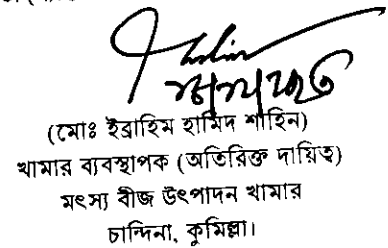 (মোঃ ইব্রাহিম হামিদ শাহিন)
খামার ব্যবস্থাপক (অতিরিক্ত দায়িত্ব)
মৎস্য বীজ উৎপাদন খামার
চান্দিনা, কুমিল্লা।